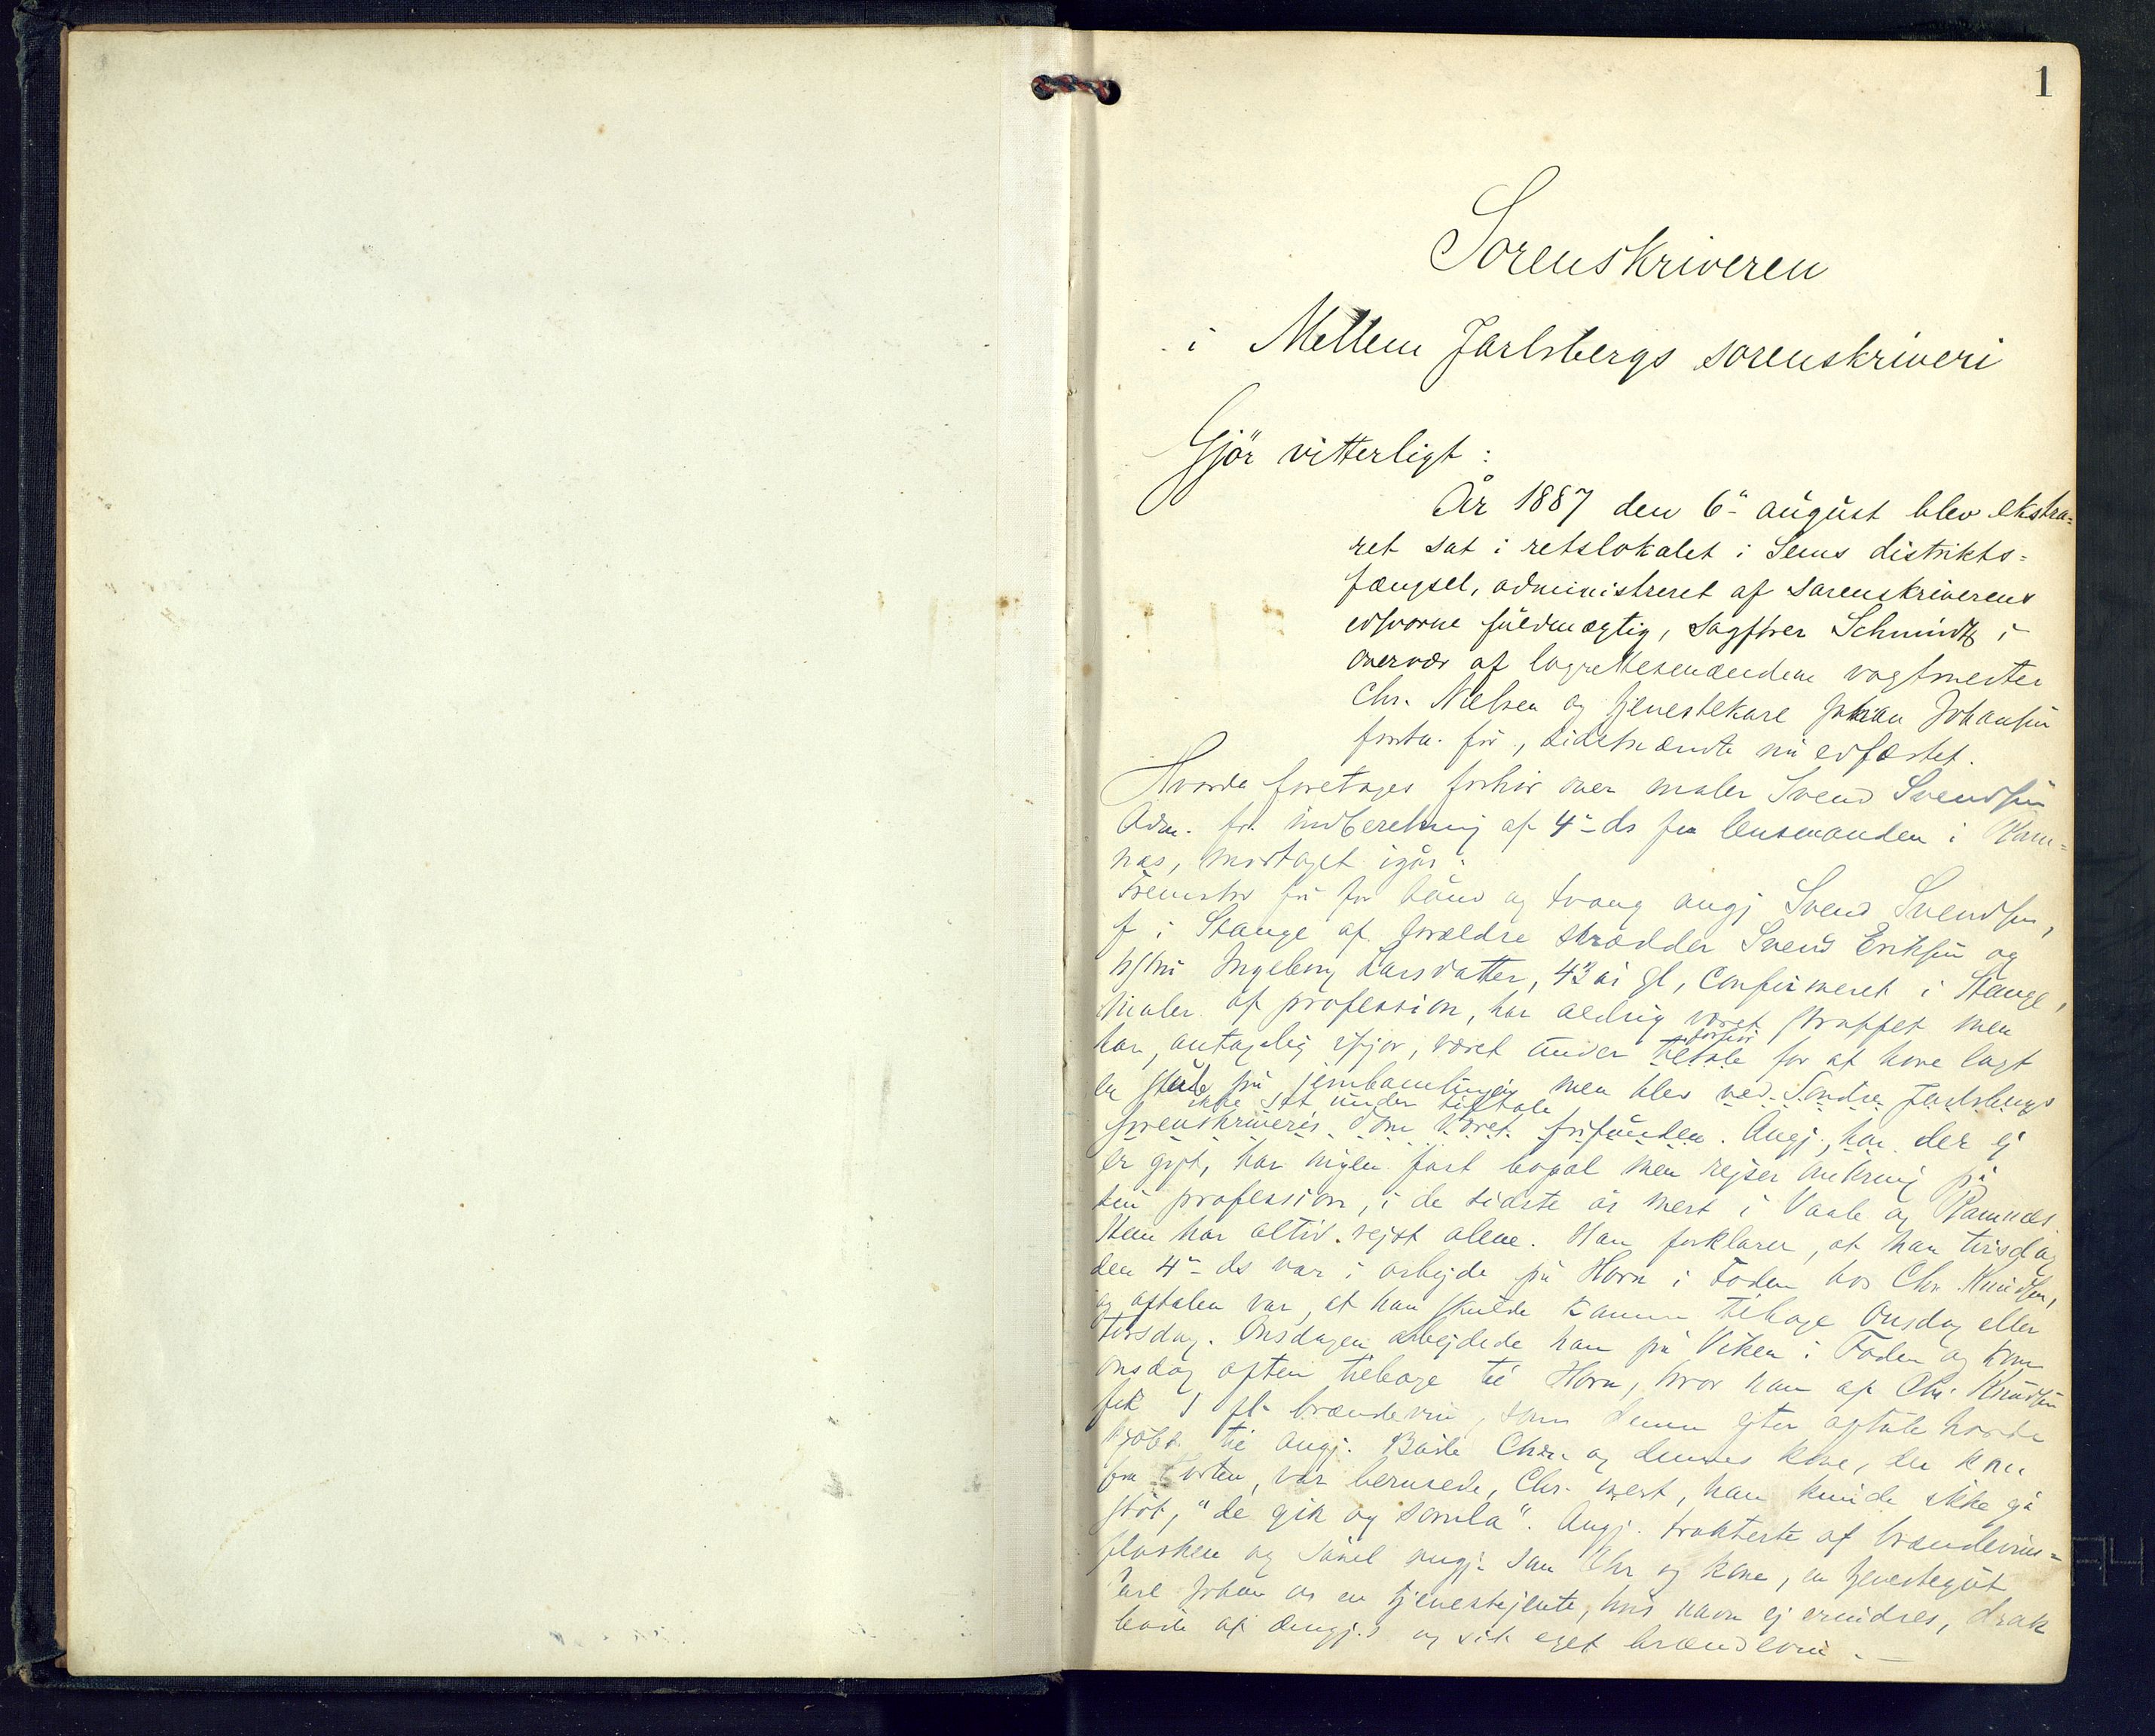 1
Sorenskriveren
i Mellem Jarlsbergs sorenskriveri
Gjör vitterligt:
År 1887 den 6" august blev ekstra=
ret sat i retslokalet i Sems distrikts=
fængsel, administreret af sorenskriverens
edsvorne fuldmægtig, sagfører Schmidt, i
overvær af lagrettesmændene vogtmester
Chr. Nielsen og tjenestekarl Johan Johansen
, sidstnævnte nu edfæstet.
Hvorda foretages forhør over maler Svend Svendsen
Adm. fr. indberetning af 4"- ds fra lensmanden i Ram=
næs, modtaget igår.
Fremstod fri for bånd og tvang angj Svend Svendsen,
f i Stange af forældre skrædder Svend Eriksen og
h/hu Ingeborg Larsdatter, 43 år gl, confirmeret i Stange,
maler af profession, har aldrig været straffet men
har, antagelig ifjor, været under tiltale forhør for at have lagt
en på jernbanelinjen men blev ved Søndre Jarlsbergs
ikke sat under tiltale
sorenskriveris dom været frifunden. Angj, har der ej
er gift, har ingen fast bopæl men rejser omkring på
sin profession, i de sidste år mest i Vaale og Ramnæs.
Han har altid rejst alene. Han forklarer, at han tirsdag
den 4"- ds var i arbejde på Horn i Foden hos Chr. Knudsen,
og aftalen var, at han skulde komme tilbage Onsdag eller
Torsdag. Onsdagen arbejdede han på Viken i Foden og kom
onsdag aften tilbage til Horn, hvor han af Chr. Knudsen
fik 1 fl. brændevin, som denne efter aftale havde
kjøbt til angj. Både Chr. og dennes kone, der kom
fra Horten, var berusede, Chr. mest, han kunde ikke gå
støt, "de gik og somla". Angj. trakterte af brændevins=
flasken og såvel angj. som Chr og kone, en tjenestegut
Carl Johan og en tjenestejente, hvis navn ej erindres, drak
både af angj.s og sit eget brændevin. —